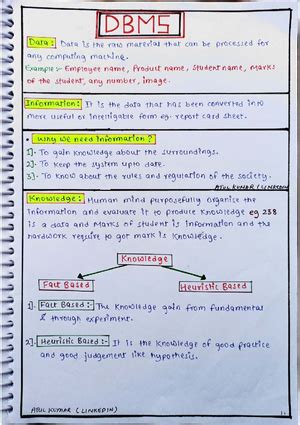 DBMS
Data :- Data is the raw material that can be processed for
any computing machine.
Example :- Employee name, Product name, Student name, Marks
of the student, any number, image.
Information :- It is the data that has been converted into
more useful or intelligible form eg: report card sheet.
• Why we need information ?
1]- To gain knowledge about the surroundings.
2]- To keep the system upto date.
3]- To know about the rules and regulation of the society.
ATUL KUMAR (LINKEDIN)
Knowledge :- Human mind purposefully organize the
information and evaluate it to produce knowledge eg 238
is a data and marks of student is information and the
hardwork require to got mark is knowledge.
Knowledge
Fact Based
Heuristic Based
1]. Fact Based :- The knowledge gain from fundamental
& through experiment.
2]. Heuristic Based :- It is the knowledge of good practice
and good judgement like hypothesis.
ATUL KUMAR (LINKEDIN)